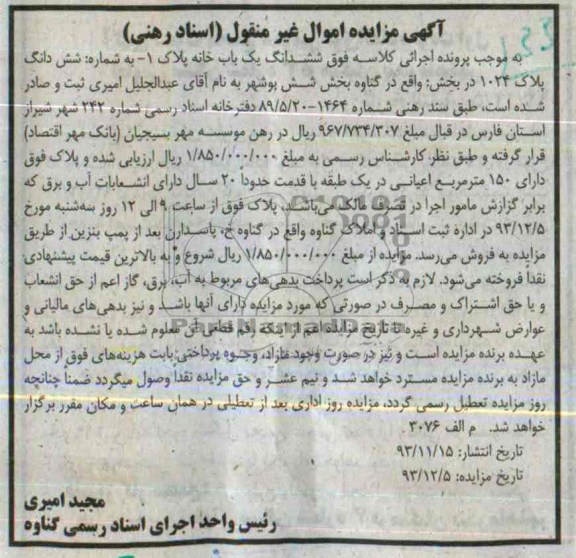 آگهی مزایده اموال غیر منقول (اسناد رهنی)
به موجب پرونده اجرائی کلاسه فوق ششدانگ یک باب خانه پلاک ۱- به شماره: شش دانگ
پلاک ۱۰۲۴ در بخش: واقع در گناوه بخش شش بوشهر به نام آقای عبدالجلیل امیری ثبت و صادر
شده است، طبق سند رهنی شماره ۱۴۶۴-۸۹/۵/۲۰ دفترخانه اسناد رسمی شماره ۲۴۲ شهر شیراز
استان فارس در قبال مبلغ ۹۶۷/۷۳۴/۳۰۷ ریال در رهن موسسه مهر بسیجیان (بانک مهر اقتصاد)
قرار گرفته و طبق نظر کارشناس رسمی به مبلغ ۱/۸۵۰/۰۰۰/۰۰۰ ریال ارزیابی شده و پلاک فوق
دارای ۱۵۰ مترمربع اعیانی در یک طبقه با قدمت حدوداً ۲۰ سال دارای انشعابات آب و برق که
برابر گزارش مامور اجرا در تصرف مالک می‌باشد. پلاک فوق از ساعت ۹ الی ۱۲ روز سه‌شنبه مورخ
۹۳/۱۲/۵ در اداره ثبت اسناد و املاک گناوه واقع در گناوه خ، پاسدارن بعد از پمپ بنزین از طریق
مزایده به فروش می‌رسد. مزایده از مبلغ ۱/۸۵۰/۰۰۰/۰۰۰ ریال شروع و به بالاترین قیمت پیشنهادی
نقداً فروخته می‌شود. لازم به ذکر است پرداخت بدهی‌های مربوط به آب، برق، گاز اعم از حق انشعاب
و یا حق اشتراک و مصرف در صورتی که مورد مزایده دارای آنها باشد و نیز بدهی‌های مالیاتی و
عوارض شهرداری و غیره تا تاریخ مزایده اعم از اینکه رقم قطعی آن معلوم شده یا نشده باشد به
عهده برنده مزایده است و نیز در صورت وجود مازاد، وجوه پرداختی بابت هزینه‌های فوق از محل
مازاد به برنده مزایده مسترد خواهد شد و نیم عشر و حق مزایده نقداً وصول میگردد ضمناً چنانچه
روز مزایده تعطیل رسمی گردد، مزایده روز اداری بعد از تعطیلی در همان ساعت و مکان مقرر برگزار
خواهد شد. م الف ۳۰۷۶
تاریخ انتشار: ۹۳/۱۱/۱۵
تاریخ مزایده: ۹۳/۱۲/۵
مجید امیری
رئیس واحد اجرای اسناد رسمی گناوه